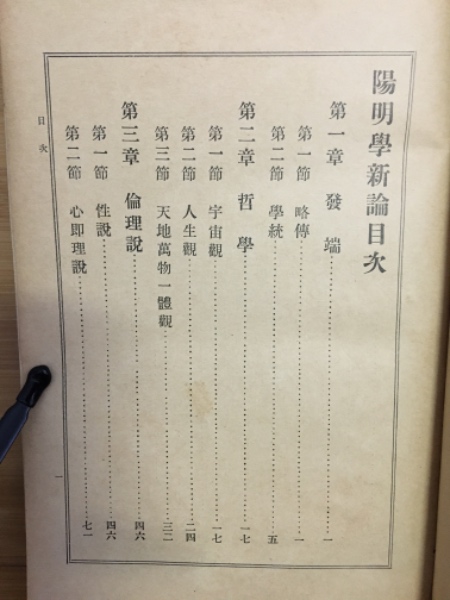 陽明學新論目次
第一章 發端……一
第一節 略傳……一
第二節 學統……五
第二章 哲學……一七
第一節 宇宙觀……一七
第二節 人生觀……二四
第三節 天地萬物一體觀……三二
第三章 倫理說……四六
第一節 性說……四六
第二節 心即理說……七一
目次
一